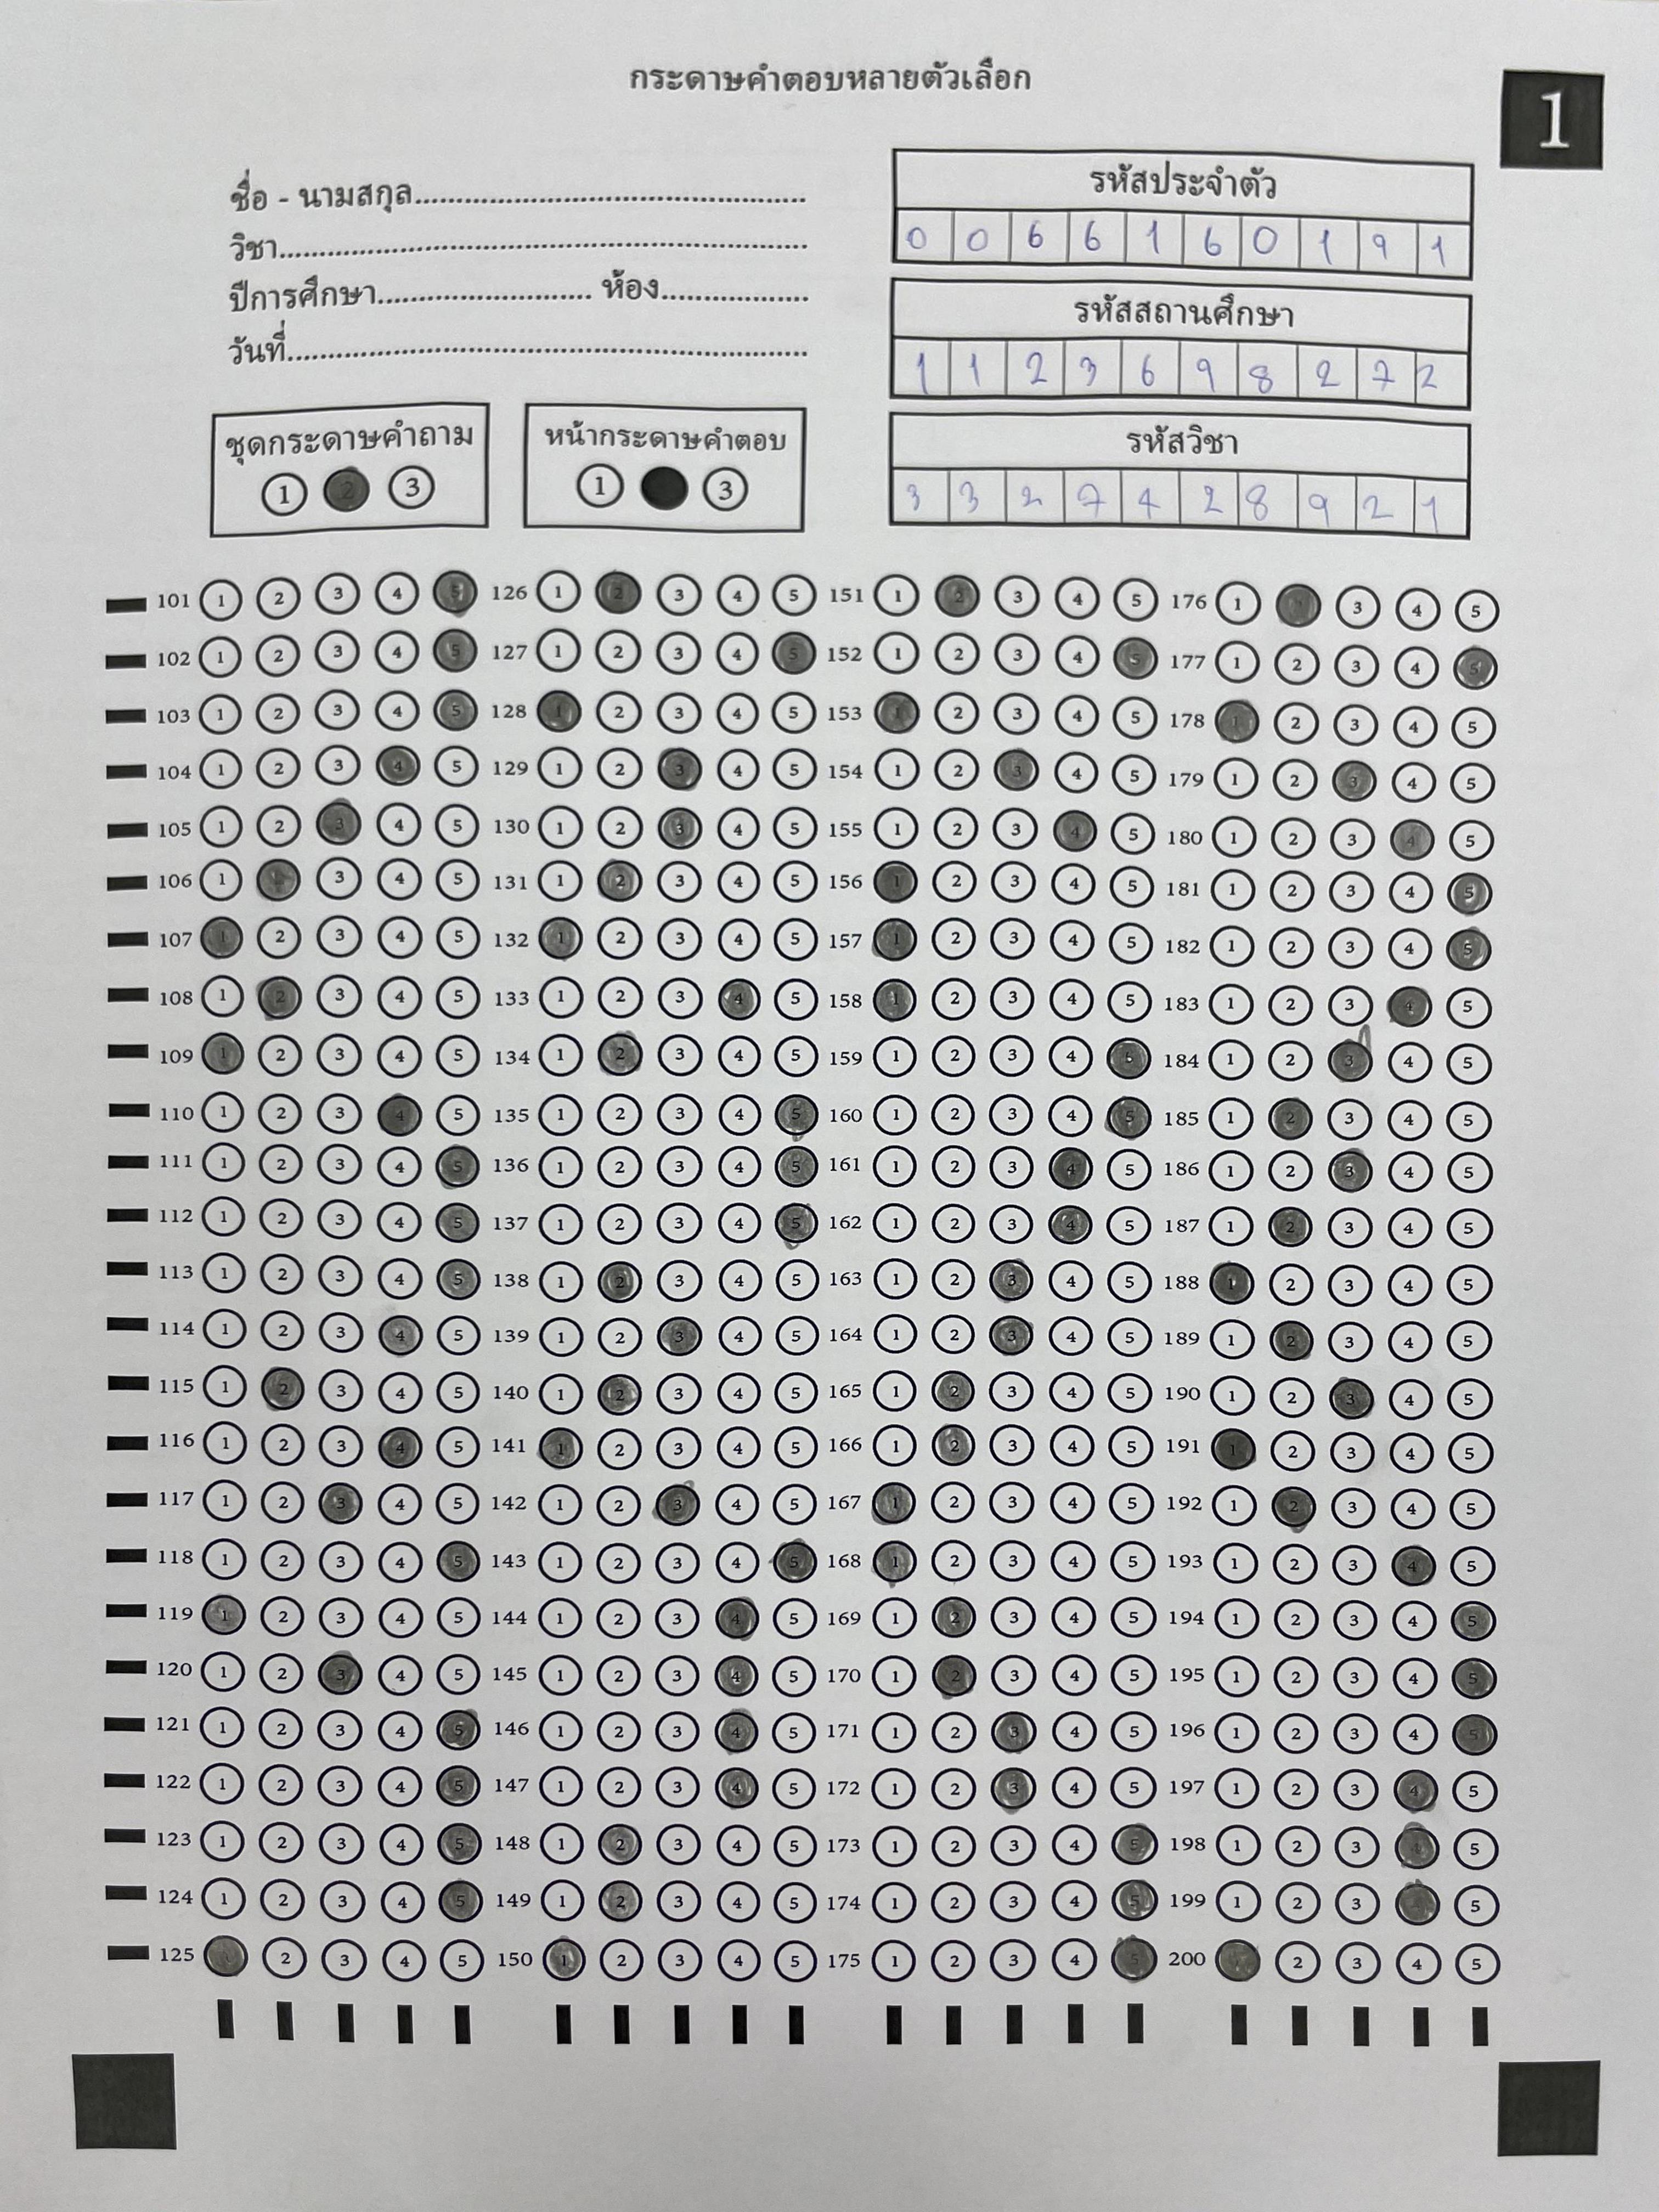 กระดาษคำตอบหลายตัวเลือก
1
ชื่อ - นามสกุล
วิชา
ปีการศึกษา ห้อง
วันที่
รหัสประจำตัว
0 0 6 6 1 6 0 1 9 1
รหัสสถานศึกษา
1 1 2 3 6 9 8 2 7 2
รหัสวิชา
3 3 2 7 4 2 8 9 2 1
ชุดกระดาษคำถาม
1 2 3
หน้ากระดาษคำตอบ
1 3
101 1 2 3 4 5 126 1 2 3 4 5 151 1 2 3 4 5 176 1 3 4 5
102 1 2 3 4 5 127 1 2 3 4 5 152 1 2 3 4 5 177 1 2 3 4 5
103 1 2 3 4 5 128 1 2 3 4 5 153 1 2 3 4 5 178 1 2 3 4 5
104 1 2 3 4 5 129 1 2 3 4 5 154 1 2 3 4 5 179 1 2 3 4 5
105 1 2 3 4 5 130 1 2 3 4 5 155 1 2 3 4 5 180 1 2 3 4 5
106 1 3 4 5 131 1 2 3 4 5 156 1 2 3 4 5 181 1 2 3 4 5
107 1 2 3 4 5 132 1 2 3 4 5 157 1 2 3 4 5 182 1 2 3 4 5
108 1 2 3 4 5 133 1 2 3 4 5 158 1 2 3 4 5 183 1 2 3 4 5
109 1 2 3 4 5 134 1 2 3 4 5 159 1 2 3 4 5 184 1 2 3 4 5
110 1 2 3 4 5 135 1 2 3 4 5 160 1 2 3 4 5 185 1 2 3 4 5
111 1 2 3 4 5 136 1 2 3 4 5 161 1 2 3 4 5 186 1 2 3 4 5
112 1 2 3 4 5 137 1 2 3 4 5 162 1 2 3 4 5 187 1 2 3 4 5
113 1 2 3 4 5 138 1 2 3 4 5 163 1 2 3 4 5 188 1 2 3 4 5
114 1 2 3 4 5 139 1 2 3 4 5 164 1 2 3 4 5 189 1 2 3 4 5
115 1 2 3 4 5 140 1 2 3 4 5 165 1 2 3 4 5 190 1 2 3 4 5
116 1 2 3 4 5 141 1 2 3 4 5 166 1 2 3 4 5 191 1 2 3 4 5
117 1 2 3 4 5 142 1 2 3 4 5 167 1 2 3 4 5 192 1 2 3 4 5
118 1 2 3 4 5 143 1 2 3 4 5 168 1 2 3 4 5 193 1 2 3 4 5
119 1 2 3 4 5 144 1 2 3 4 5 169 1 2 3 4 5 194 1 2 3 4 5
120 1 2 3 4 5 145 1 2 3 4 5 170 1 2 3 4 5 195 1 2 3 4 5
121 1 2 3 4 5 146 1 2 3 4 5 171 1 2 3 4 5 196 1 2 3 4 5
122 1 2 3 4 5 147 1 2 3 4 5 172 1 2 3 4 5 197 1 2 3 4 5
123 1 2 3 4 5 148 1 2 3 4 5 173 1 2 3 4 5 198 1 2 3 4 5
124 1 2 3 4 5 149 1 2 3 4 5 174 1 2 3 4 5 199 1 2 3 4 5
125 2 3 4 5 150 1 2 3 4 5 175 1 2 3 4 5 200 2 3 4 5